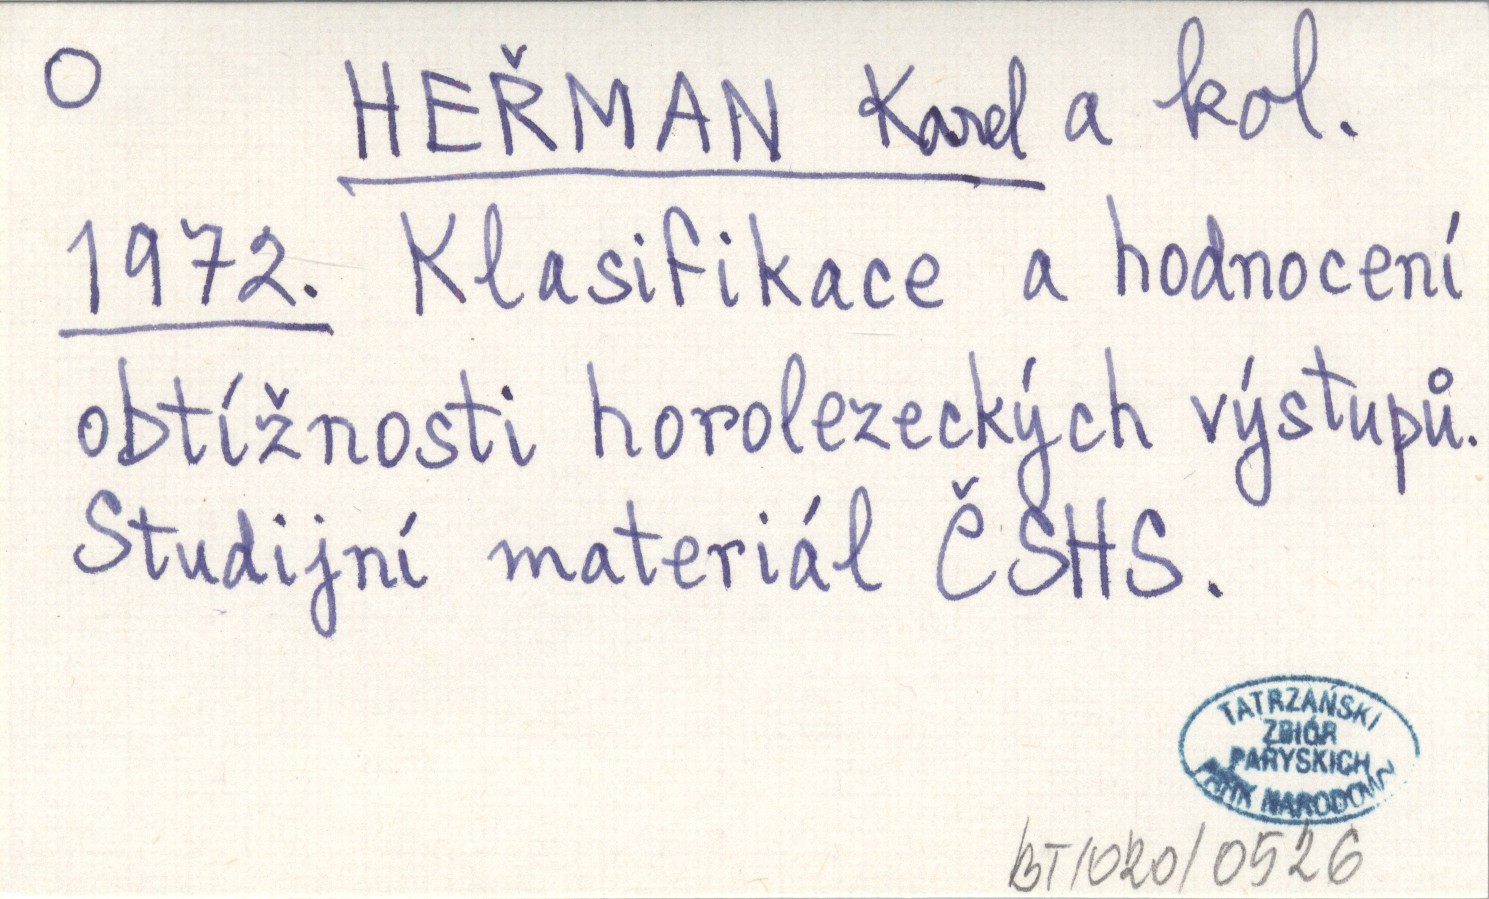 O HEŘMAN Karel a kol.
1972. Klasifikace a hodnocení
obtížnosti horolezeckých výstupů.
Studijní materiál ČSHS.
TATRZAŃSKI
ZBIÓR
PARYSKICH
PARK NARODOWY
BT/020/0526